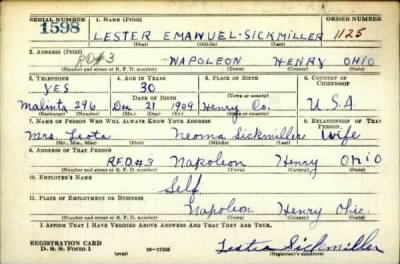 SERIAL NUMBER 1. NAME (Print) ORDER NUMBER
1598 LESTER EMANUEL SICKMILLER 1125
(First) (Middle) (Last)
2. ADDRESS (Print)
RD#3 NAPOLEON HENRY OHIO
(Number and street or R. F. D. number) (Town) (County) (State)
3. TELEPHONE 4. AGE IN YEARS 5. PLACE OF BIRTH 6. COUNTRY OF CITIZENSHIP
YES 30
DATE OF BIRTH (Town or county)
Malinta 296 Dec 21 1909 Henry Co. U.S.A
(Exchange) (Number) (Mo.) (Day) (Yr.) (State or country)
7. NAME OF PERSON WHO WILL ALWAYS KNOW YOUR ADDRESS 8. RELATIONSHIP OF THAT PERSON
Mrs. Leota Neoma Sickmiller Wife
(Mr., Mrs., Miss) (First) (Middle) (Last)
9. ADDRESS OF THAT PERSON
R.F.D.#3 Napoleon Henry OHIO
(Number and street or R. F. D. number) (Town) (County) (State)
10. EMPLOYER'S NAME
Self
11. PLACE OF EMPLOYMENT OR BUSINESS
Napoleon Henry Ohio
(Number and street or R. F. D. number) (Town) (County) (State)
I AFFIRM THAT I HAVE VERIFIED ABOVE ANSWERS AND THAT THEY ARE TRUE.
REGISTRATION CARD
D. S. S. Form 1 (over) Sickmiller
(Registrant's signature)